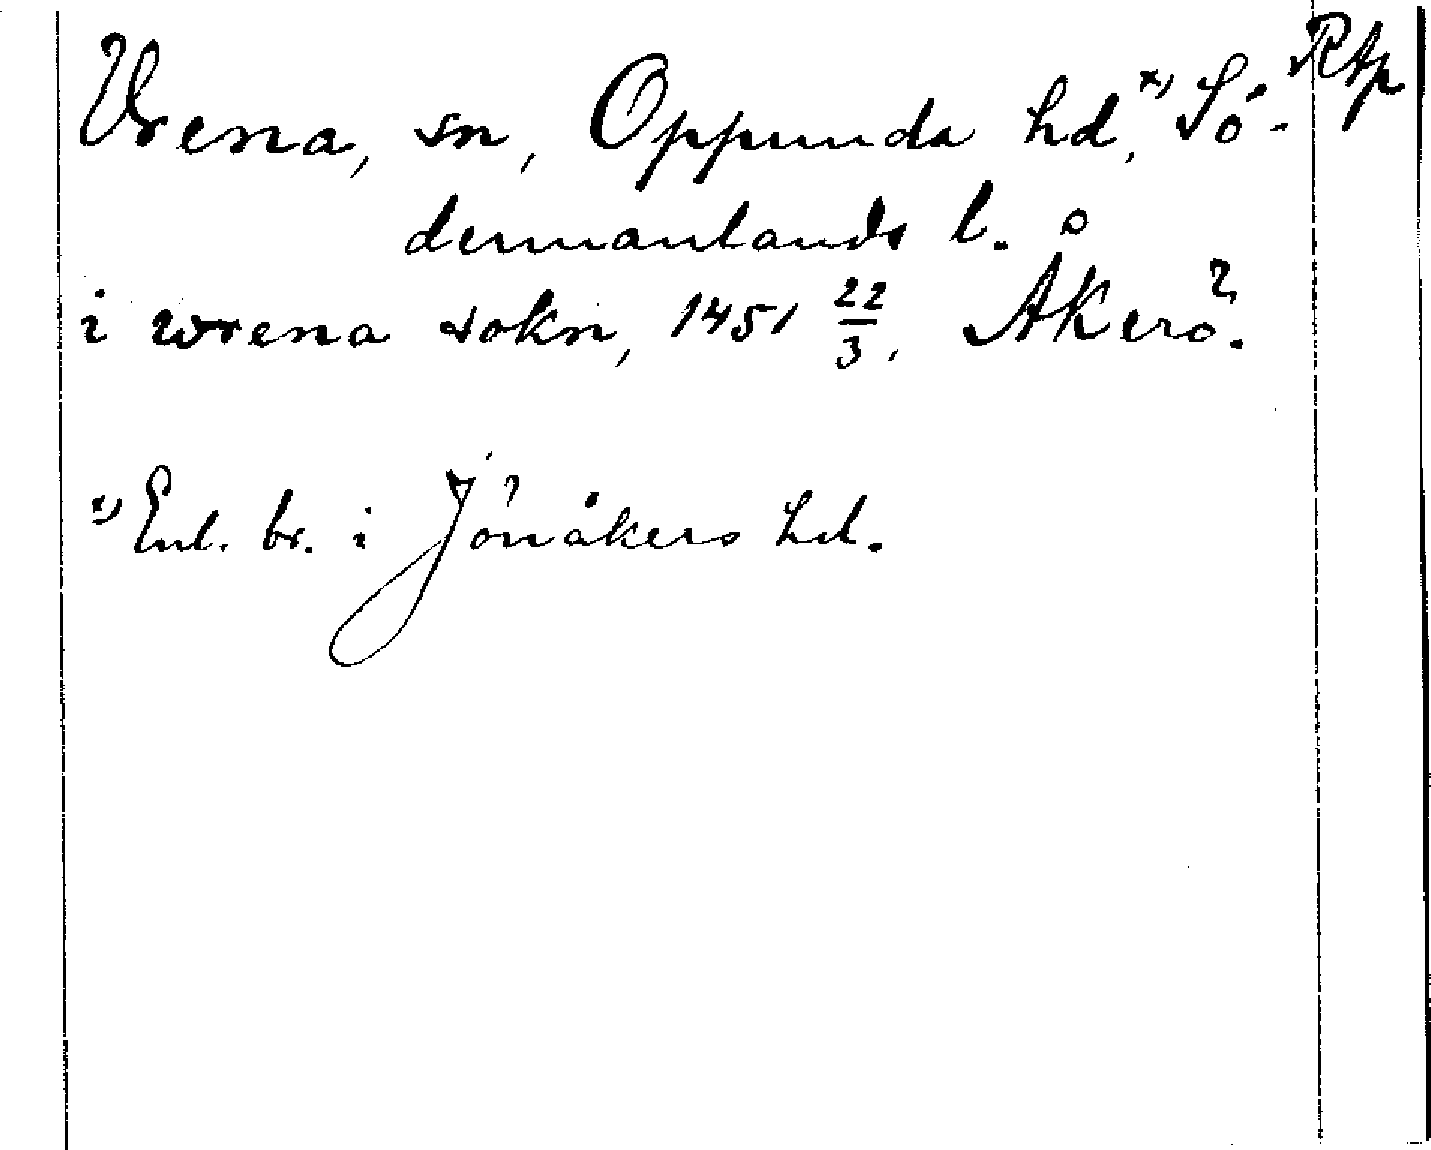 Vrena, sn, Oppunda hd,x) Sö- Rap
dermanlands l.
i wrena sokn, 1451 22/3, Åkerö.
x) Enl. br. i Jönåkers hd.